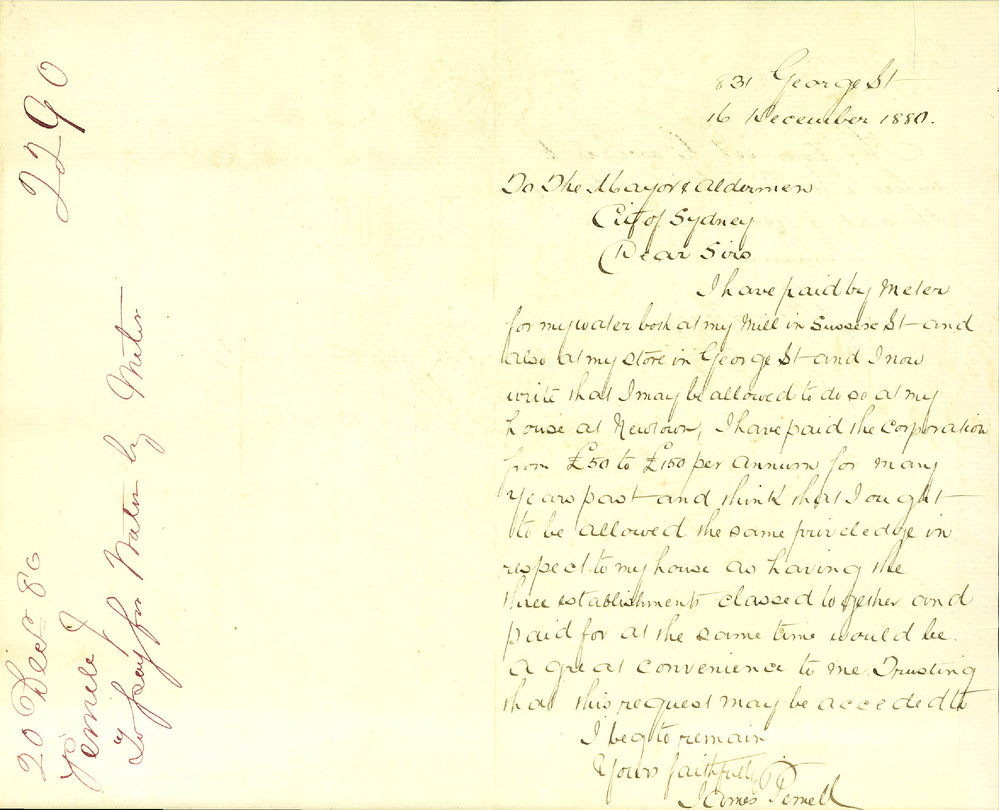 831 George St
16 December 1880.
To The Mayor & Aldermen
City of Sydney
Dear Sirs
I have paid by Meter
for my water both at my Mill in Sussex St and
also at my store in George St and I now
write that I may be allowed to do so at my
house at Newtown, I have paid the Corporation
from £50 to £150 per Annum for many
years past and think that I ought
to be allowed the same priveledge in
respect to my house as having the
three establishments classed together and
paid for at the same time would be
a great convenience to me Trusting
that this request may be acceded to
I beg to remain
Yours faithfully
James Pemell
2290
20 Decr 80
Pemell J
To pay for Water by Meter